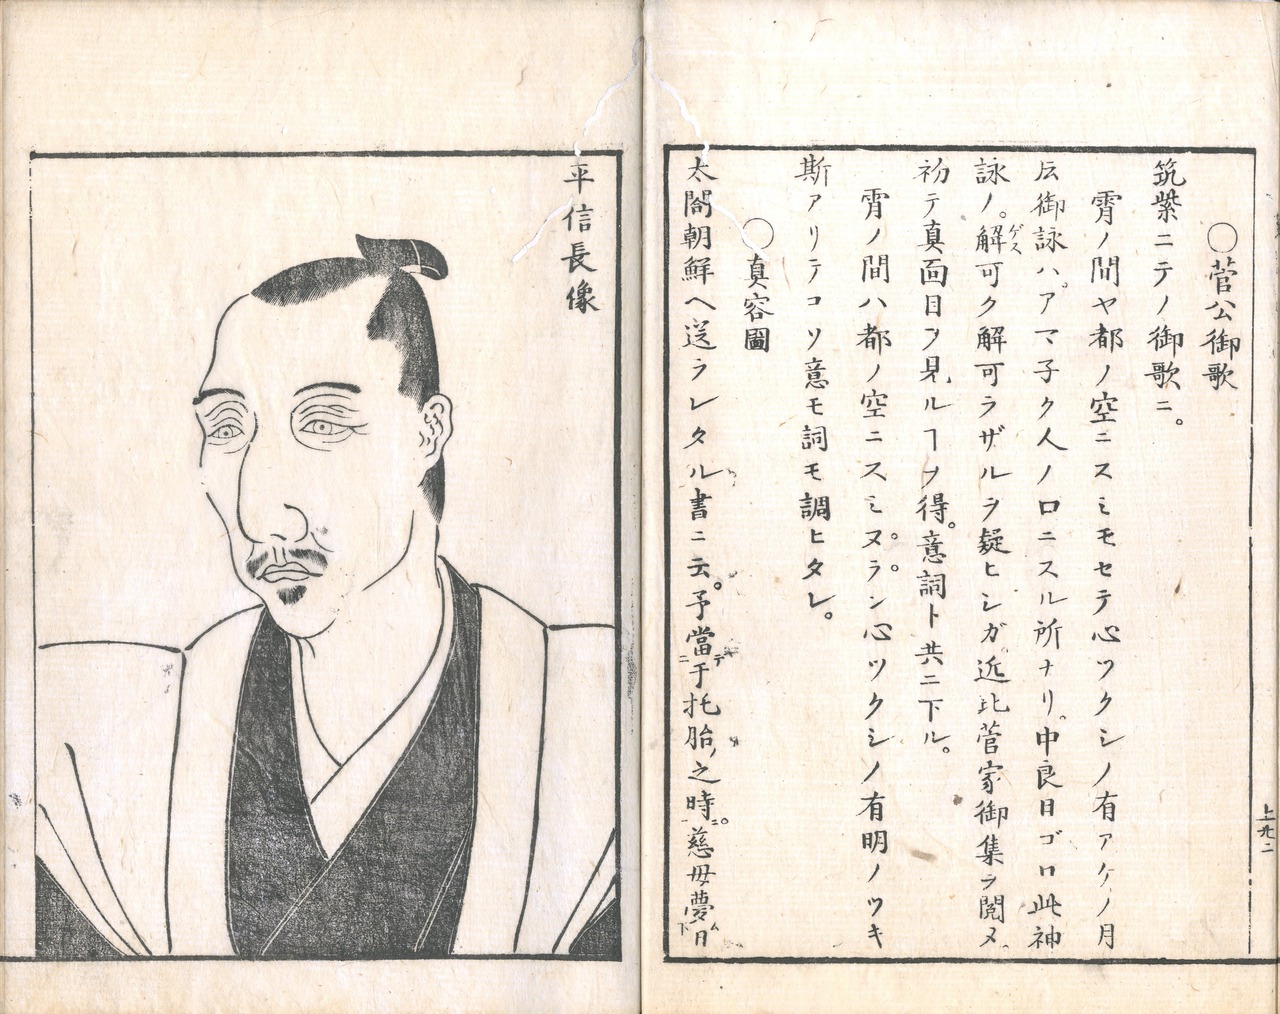 ○菅公御歌
筑紫ニテノ御歌ニ。
霄ノ間ヤ都ノ空ニスミモセテ心ツクシノ有アケノ月
云御詠ハ。アマ子ク人ノ口ニスル所ナリ。中良日ゴロ此神
詠ノ。解ゲス可ク解可ラザルヲ疑ヒシガ近比菅家御集ヲ閲メ。
初テ真面目ヲ見ルヿヲ得。意詞ト共ニ下ル。
霄ノ間ハ都ノ空ニスミヌ。ラ。ン心ツクシノ有明ノツキ
斯アリテコソ意モ詞モ調ヒタレ。
○真容圖
太閤朝鮮ヘ送ラレタル書ニ云。予當テニ于托胎ノ之時ニ。慈母夢ム日
上九二
平信長像